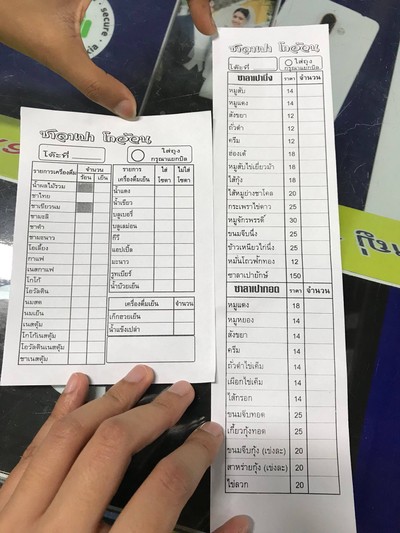 ซาลาเปา โกอ้วน
โต๊ะที่
ใส่ถุง
กรุณาแยกบิล
รายการเครื่องดื่ม
จำนวน
ร้อน เย็น
น้ำผลไม้รวม
ชาไทย
ชาเขียวนม
ชามะลิ
ชาดำ
ชามะนาว
โอเลี้ยง
กาแฟ
เนสกาแฟ
โกโก้
โอวัลติน
นมสด
นมเย็น
เนสตุ๋ม
โกโก้เนสตุ๋ม
โอวัลตินเนสตุ๋ม
ชาเนสตุ๋ม
รายการ
เครื่องดื่มเย็น
ใส่
โซดา
ไม่ใส่
โซดา
น้ำแดง
น้ำเขียว
บลูเบอรี่
บลูเลม่อน
กีวี
แอปเปิ้ล
มะนาว
รูทเบียร์
น้ำบ๊วยเย็น
เครื่องดื่มเย็น จำนวน
เก๊กฮวยเย็น
น้ำแข็งเปล่า
ซาลาเปา โกอ้วน
โต๊ะที่
ใส่ถุง
กรุณาแยกบิล
ซาลาเปานึ่ง ราคา จำนวน
หมูสับ 14
หมูแดง 14
สังขยา 12
ถั่วดำ 12
ครีม 12
ฮ่องเต้ 18
หมูสับไข่เยี่ยวม้า 18
ไส้กุ้ง 18
ไส้หมูย่างชาโคล 20
กระเพราไข่ดาว 25
หมูจักรพรรดิ์ 30
ขนมจีบนึ่ง 25
ข้าวเหนียวไก่นึ่ง 25
หมั่นโถวฟักทอง 12
ซาลาเปายักษ์ 150
ซาลาเปาทอด ราคา จำนวน
หมูแดง 18
หมูหยอง 14
สังขยา 14
ครีม 14
ถั่วดำไข่เค็ม 14
เผือกไข่เค็ม 14
ไส้กรอก 14
ขนมจีบทอด 25
เกี้ยวกุ้งทอด 25
ขนมจีบกุ้ง (เข่งละ) 20
สาหร่ายกุ้ง (เข่งละ) 20
ไข่ลวก 20